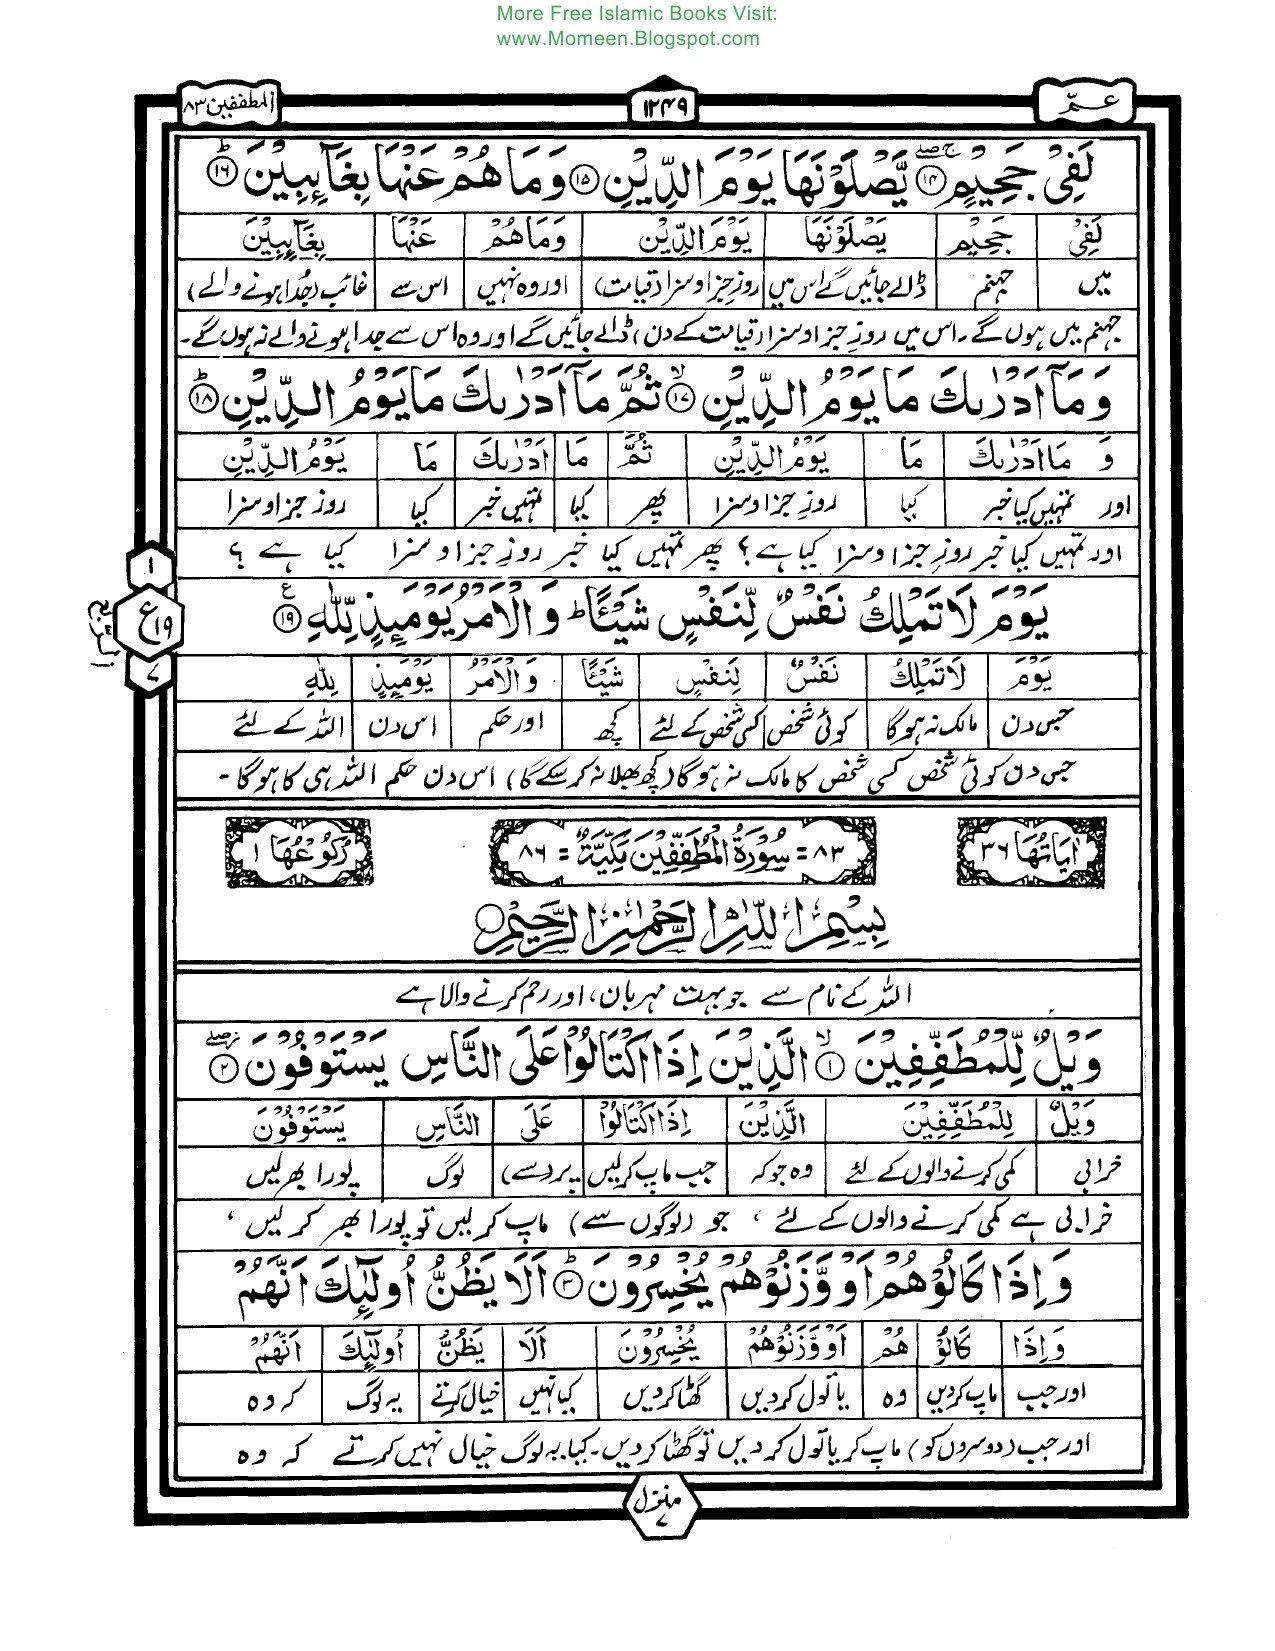 More Free Islamic Books Visit:
www.Momeen.Blogspot.com
عمّ
۱۲۴۹
المطففین ۸۳
لَفِیْ جَحِیْمٍ ۱۴ یَّصْلَوْنَهَا یَوْمَ الدِّیْنِ ۱۵ وَمَا هُمْ عَنْهَا بِغَآىِٕبِیْنَ ۱۶
لَفِیْ جَحِیْمٍ یَصْلَوْنَهَا یَوْمَ الدِّیْنِ وَمَا هُمْ عَنْهَا بِغَآىِٕبِیْنَ
میں جہنم ڈالے جائیں گے اس میں روزِ جزا و سزا (قیامت) اور وہ نہیں اس سے غائب (جُدا ہونے والے)
جہنم میں ہوں گے۔ اس میں روزِ جزا و سزا (قیامت کے دن) ڈالے جائیں گے اور وہ اس سے جدا ہونے والے نہ ہوں گے۔
وَمَآ اَدْرٰىكَ مَا یَوْمُ الدِّیْنِ ۱۷ ثُمَّ مَآ اَدْرٰىكَ مَا یَوْمُ الدِّیْنِ ۱۸
وَ مَا اَدْرٰىكَ مَا یَوْمُ الدِّیْنِ ثُمَّ مَا اَدْرٰىكَ مَا یَوْمُ الدِّیْنِ
اور تمہیں کیا خبر کیا روزِ جزا و سزا پھر کیا تمہیں خبر کیا روزِ جزا و سزا
اور تمہیں کیا خبر روزِ جزا و سزا کیا ہے؟ پھر تمہیں کیا خبر روزِ جزا و سزا کیا ہے؟
۱
ع ۱۹
۷
یَوْمَ لَا تَمْلِكُ نَفْسٌ لِّنَفْسٍ شَیْـًٔاؕ وَ الْاَمْرُ یَوْمَىِٕذٍ لِّلّٰهِ ۱۹
یَوْمَ لَا تَمْلِكُ نَفْسٌ لِنَفْسٍ شَیْـًٔا وَالْاَمْرُ یَوْمَىِٕذٍ لِلّٰهِ
جس دن مالک نہ ہوگا کوئی شخص کسی شخص کے لئے کچھ اور حکم اس دن اللہ کے لئے
جس دن کوئی شخص کسی شخص کا مالک نہ ہوگا (کچھ بھلا نہ کر سکے گا) اس دن حکم اللہ ہی کا ہوگا۔
اٰیَاتُهَا ۳۶
۸۳ = سُوْرَةُ الْمُطَفِّفِیْنَ مَكِّیَّةٌ = ۸۶
رُكُوْعُهَا ۱
بِسْمِ اللّٰهِ الرَّحْمٰنِ الرَّحِیْمِ
اللہ کے نام سے جو بہت مہربان، اور رحم کرنے والا ہے
وَیْلٌ لِّلْمُطَفِّفِیْنَ ۱ الَّذِیْنَ اِذَا اكْتَالُوْا عَلَى النَّاسِ یَسْتَوْفُوْنَ ۲
وَیْلٌ لِلْمُطَفِّفِیْنَ الَّذِیْنَ اِذَا اكْتَالُوْا عَلَى النَّاسِ یَسْتَوْفُوْنَ
خرابی کمی کرنے والوں کے لئے وہ جو کہ جب ماپ کر لیں پر (سے) لوگ پورا بھر لیں
خرابی ہے کمی کرنے والوں کے لئے، جو (لوگوں سے) ماپ کر لیں تو پورا بھر کر لیں،
وَاِذَا كَالُوْهُمْ اَوْ وَّزَنُوْهُمْ یُخْسِرُوْنَ ۳ اَلَا یَظُنُّ اُولٰٓىِٕكَ اَنَّهُمْ
وَاِذَا كَالُوْ هُمْ اَوْ وَّزَنُوْهُمْ یُخْسِرُوْنَ اَلَا یَظُنُّ اُولٰٓىِٕكَ اَنَّهُمْ
اور جب ماپ کر دیں وہ یا تول کر دیں گھٹا کر دیں کیا نہیں خیال کرتے یہ لوگ کہ وہ
اور جب (دوسروں کو) ماپ کر یا تول کر دیں تو گھٹا کر دیں۔ کیا یہ لوگ خیال نہیں کرتے کہ وہ
منزل
۷